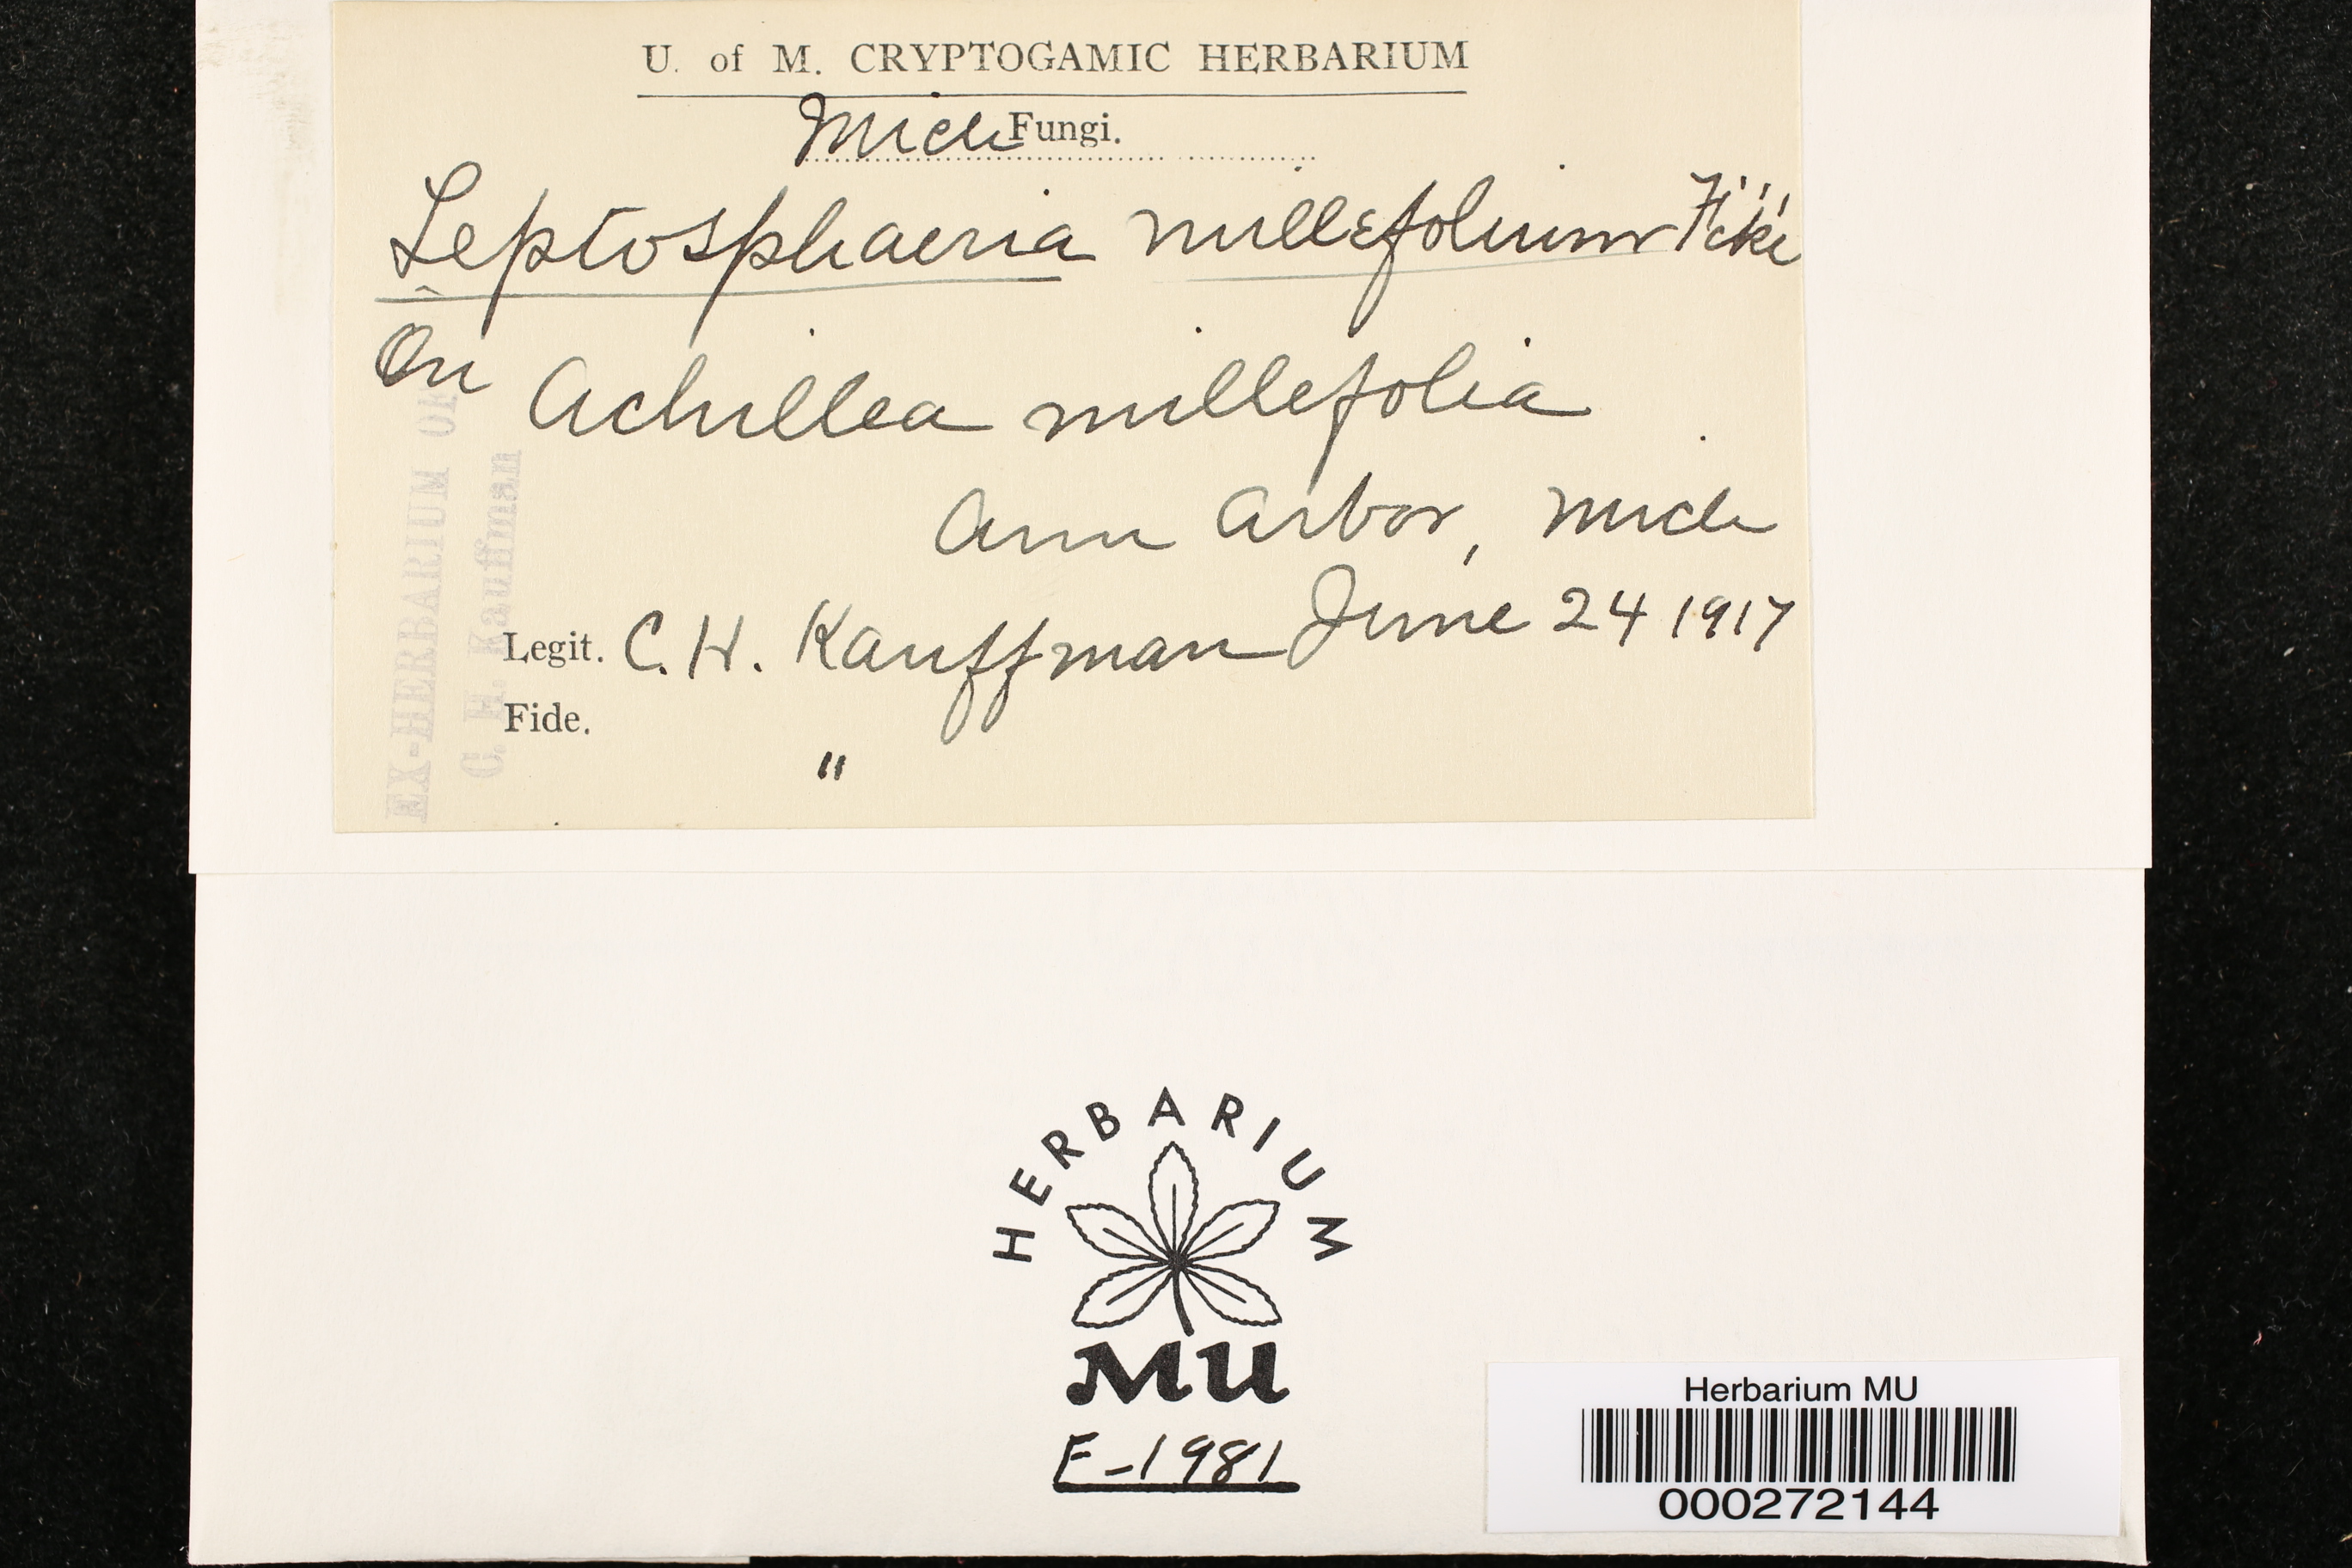 U. of M. CRYPTOGAMIC HERBARIUM
Mich Fungi.
Leptosphaeria millefolium Fckl
On Achillea millefolia
Ann Arbor, Mich
Legit. C. H. Kauffman June 24 1917
Fide. "
EX-HERBARIUM OF
C. H. Kauffman
HERBARIUM
MU
F-1981
Herbarium MU
000272144